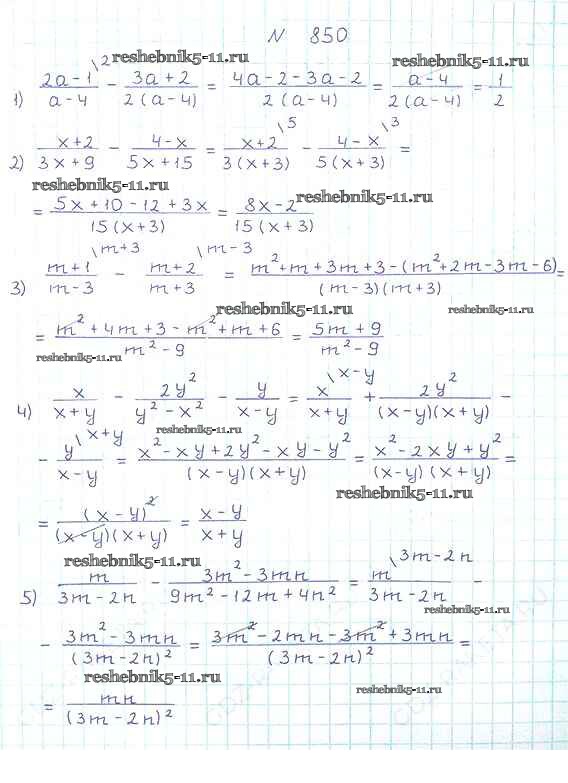 N 850
reshebnik5-11.ru reshebnik5-11.ru
1) \frac{2a-1^{\backslash 2}}{a-4} - \frac{3a+2}{2(a-4)} = \frac{4a-2-3a-2}{2(a-4)} = \frac{a-4}{2(a-4)} = \frac{1}{2}
2) \frac{x+2}{3x+9} - \frac{4-x}{5x+15} = \frac{x+2^{\backslash 5}}{3(x+3)} - \frac{4-x^{\backslash 3}}{5(x+3)} =
reshebnik5-11.ru reshebnik5-11.ru
= \frac{5x+10-12+3x}{15(x+3)} = \frac{8x-2}{15(x+3)}
3) \frac{m+1^{\backslash m+3}}{m-3} - \frac{m+2^{\backslash m-3}}{m+3} = \frac{m^2+m+3m+3-(m^2+2m-3m-6)}{(m-3)(m+3)} =
reshebnik5-11.ru reshebnik5-11.ru
= \frac{m^2+4m+3-m^2+m+6}{m^2-9} = \frac{5m+9}{m^2-9}
reshebnik5-11.ru
4) \frac{x}{x+y} - \frac{2y^2}{y^2-x^2} - \frac{y}{x-y} = \frac{x^{\backslash x-y}}{x+y} + \frac{2y^2}{(x-y)(x+y)} -
reshebnik5-11.ru
- \frac{y^{\backslash x+y}}{x-y} = \frac{x^2-xy+2y^2-xy-y^2}{(x-y)(x+y)} = \frac{x^2-2xy+y^2}{(x-y)(x+y)} =
reshebnik5-11.ru
= \frac{(x-y)^2}{(x-y)(x+y)} = \frac{x-y}{x+y}
reshebnik5-11.ru
5) \frac{m}{3m-2n} - \frac{3m^2-3mn}{9m^2-12mn+4n^2} = \frac{m^{\backslash 3m-2n}}{3m-2n} -
reshebnik5-11.ru
- \frac{3m^2-3mn}{(3m-2n)^2} = \frac{3m^2-2mn-3m^2+3mn}{(3m-2n)^2} =
reshebnik5-11.ru reshebnik5-11.ru
= \frac{mn}{(3m-2n)^2}